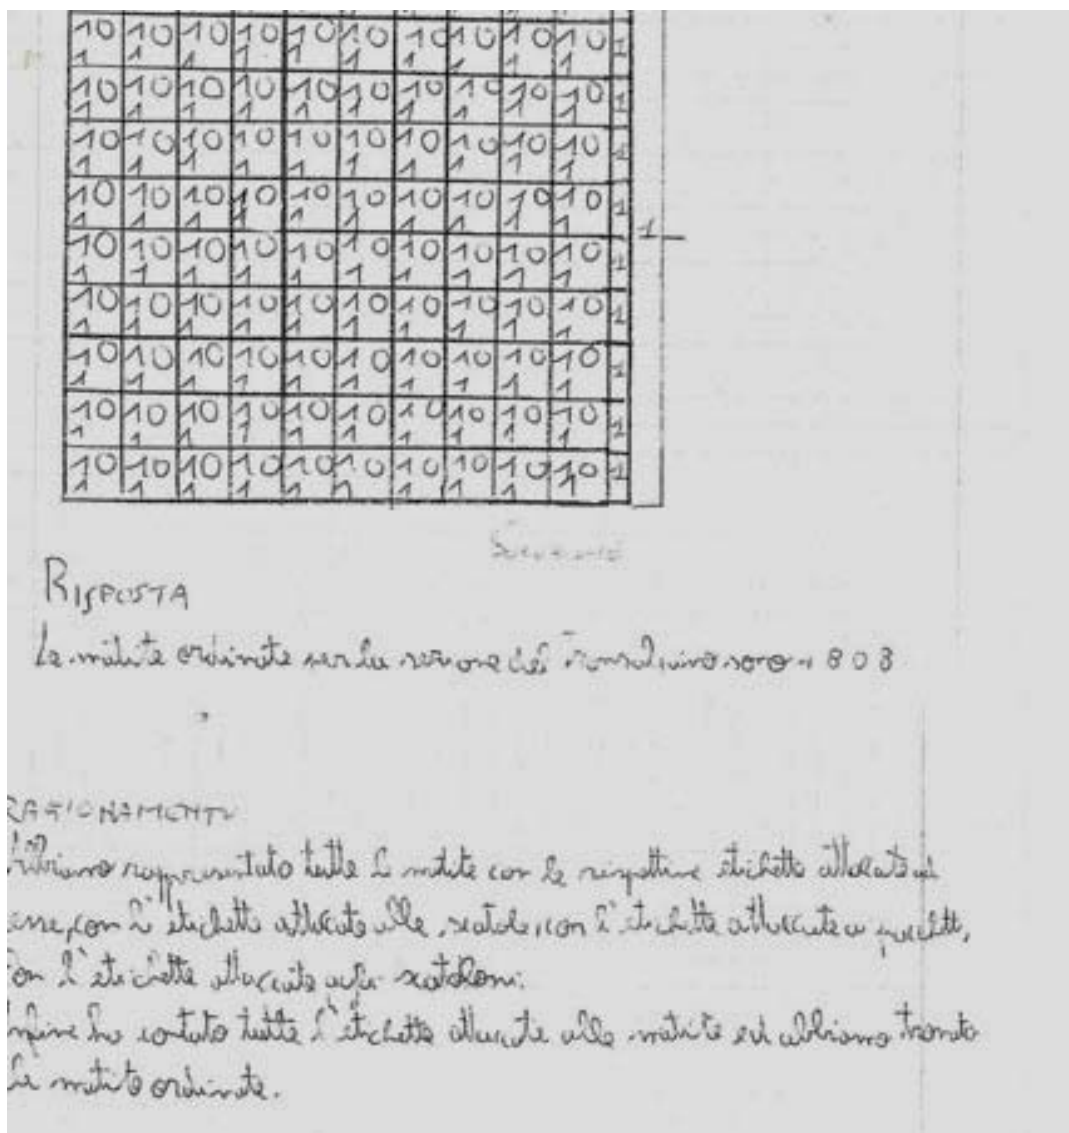 10 10 10 10 10 10 10 10 10 10 1
1 1 1 1 1 1 1 1 1 1
10 10 10 10 10 10 10 10 10 10 1
1 1 1 1 1 1 1 1 1 1
10 10 10 10 10 10 10 10 10 10 1
1 1 1 1 1 1 1 1 1 1
10 10 10 10 10 10 10 10 10 10 1
1 1 1 1 1 1 1 1 1 1
1
10 10 10 10 10 10 10 10 10 10 1
1 1 1 1 1 1 1 1 1 1
10 10 10 10 10 10 10 10 10 10 1
1 1 1 1 1 1 1 1 1 1
10 10 10 10 10 10 10 10 10 10 1
1 1 1 1 1 1 1 1 1 1
10 10 10 10 10 10 10 10 10 10 1
1 1 1 1 1 1 1 1 1 1
10 10 10 10 10 10 10 10 10 10 1
1 1 1 1 1 1 1 1 1 1
RISPOSTA
Le matite ordinate per la del sono 1 803
RAGIONAMENTO
Abbiamo rappresentato tutte le matite con le rispettive etichette attaccate ad
esse, con l'etichetta attaccata alle scatole, con l'etichetta attaccata ai pacchetti,
con l'etichetta attaccata scatoloni.
Infine ho contato tutte l'etichette attaccate alle matite ed abbiamo trovato
le matite ordinate.